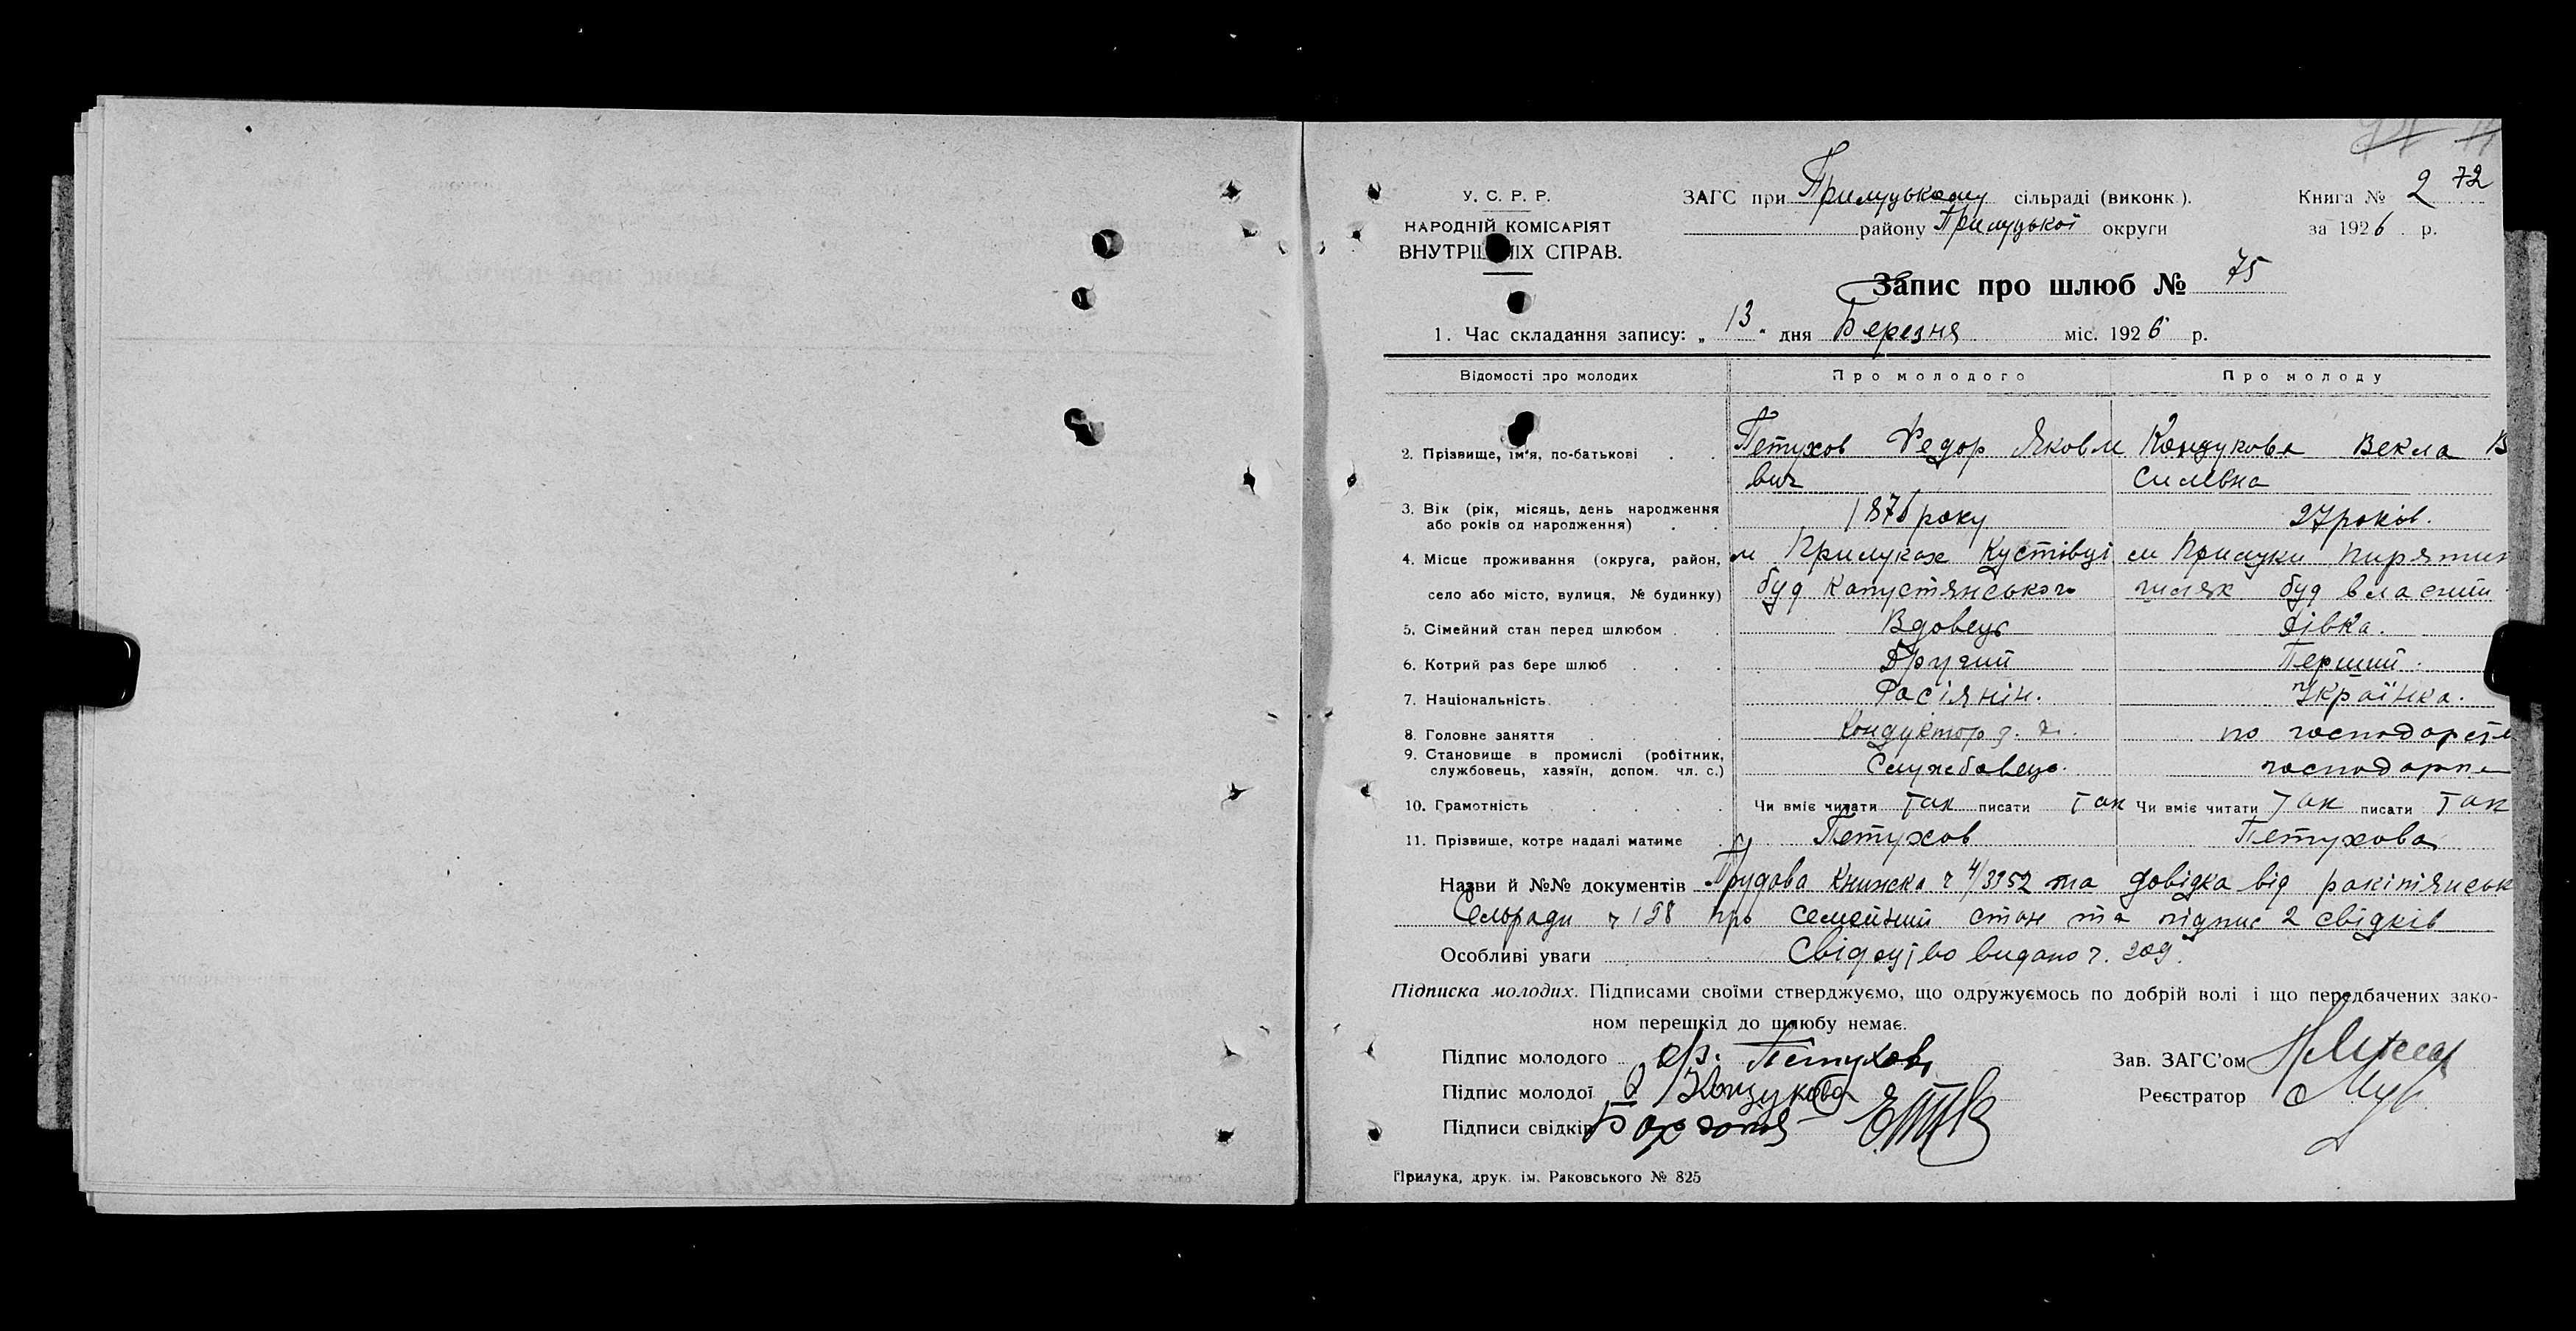 72
У. С. Р. Р.
НАРОДНІЙ КОМІСАРІЯТ
ВНУТРІШНІХ СПРАВ.
ЗАГС при Прилуцькому сільраді (виконк).
району Прилуцької округи
Книга № 2
за 1926 р.
Запис про шлюб № 75
1. Час складання запису: „ 13 " дня Березня міс. 1926 р.
Відомості про молодих Про молодого Про молоду
2. Прізвище, ім'я, по-батькові Петухов Федор Яковл Кондукова Векла В
вич силевна
3. Вік (рік, місяць, день народження
або років од народження) 1876 року 27 років.
4. Місце проживання (округа, район, м Прилуках Кустівці м Прилуки Пирятин
село або місто, вулиця, № будинку) буд Капустянського шлях буд власний
5. Сімейний стан перед шлюбом Вдовець Дівка.
6. Котрий раз бере шлюб Другий Перший.
7. Національність Расіянін. Українка.
8. Головне заняття Кондуктор по господарст
9. Становище в промислі (робітник,
службовець, хазяїн, допом. чл. с.) Службовець. господарка
10. Грамотність Чи вміє читати так писати так Чи вміє читати так писати так
11. Прізвище, котре надалі матиме Петухов Петухова
Назви й №№ документів Трудова Книжка ч 4/3352 та довідка від ракітянськ
Сельради ч 198 про семейний стан та підпис 2 свідків
Особливі уваги Свідоцтво видано ч. 209.
Підписка молодих. Підписами своїми стверджуємо, що одружуємось по добрій волі і що передбачених зако-
ном перешкід до шлюбу немає.
Підпис молодого Ф. Петухов
Зав. ЗАГС'ом
Підпис молодої
Реєстратор
Підписи свідків
Прилука, друк. ім. Раковського № 825